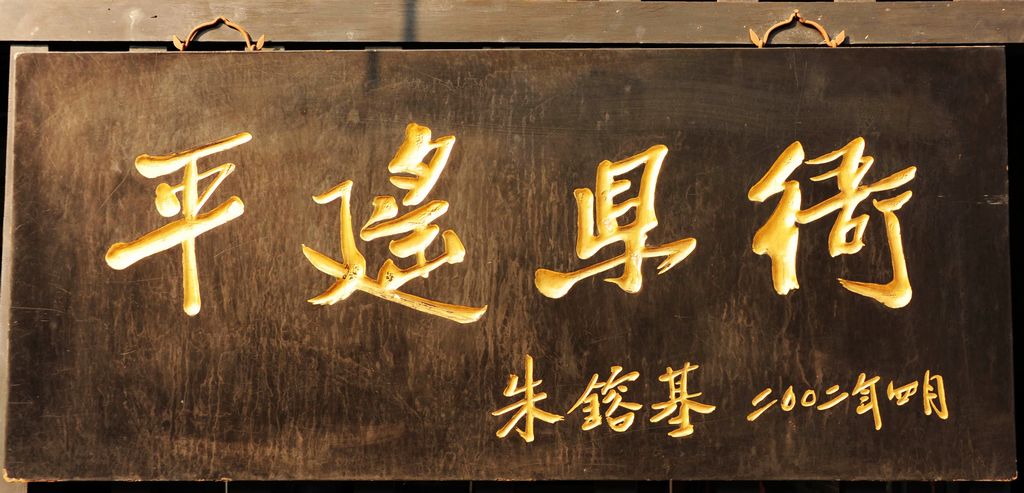 平遥県衙
朱鎔基 二〇〇二年四月